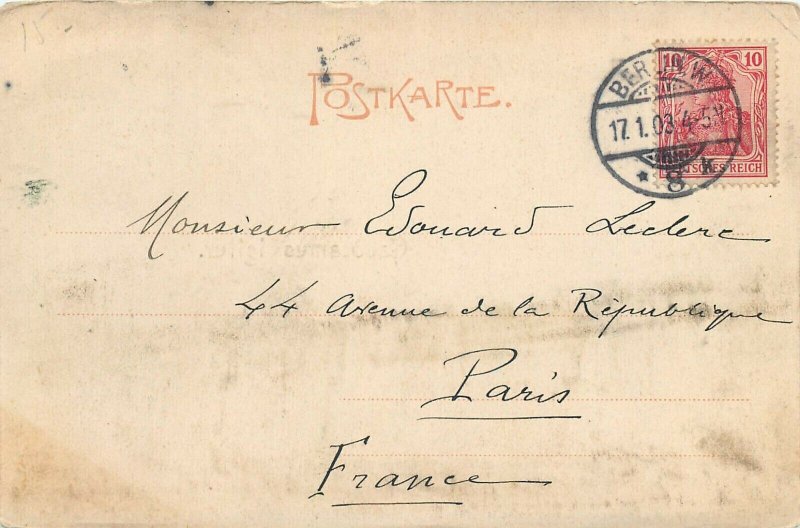 15-
POSTKARTE.
10 10
DEUTSCHES REICH
BERLIN W
17.1.03.4-5N
* 8 k
Monsieur Edouard Leclerc
44 Avenue de la République
Paris
France